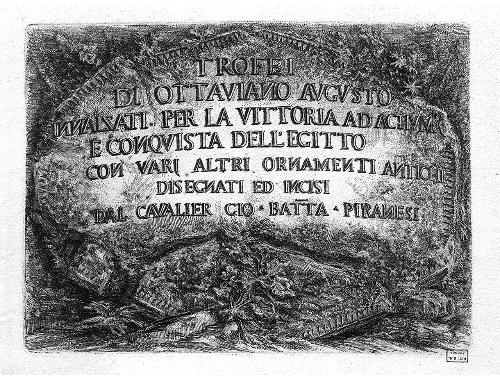 TROFEI
DI OTTAVIANO AUGUSTO
INNALZATI · PER LA VITTORIA AD ACTIUM
E CONQUISTA DELL'EGITTO
CON VARI ALTRI ORNAMENTI ANTICHI
DISEGNATI ED INCISI
DAL CAVALIER GIO · BATTA · PIRANESI